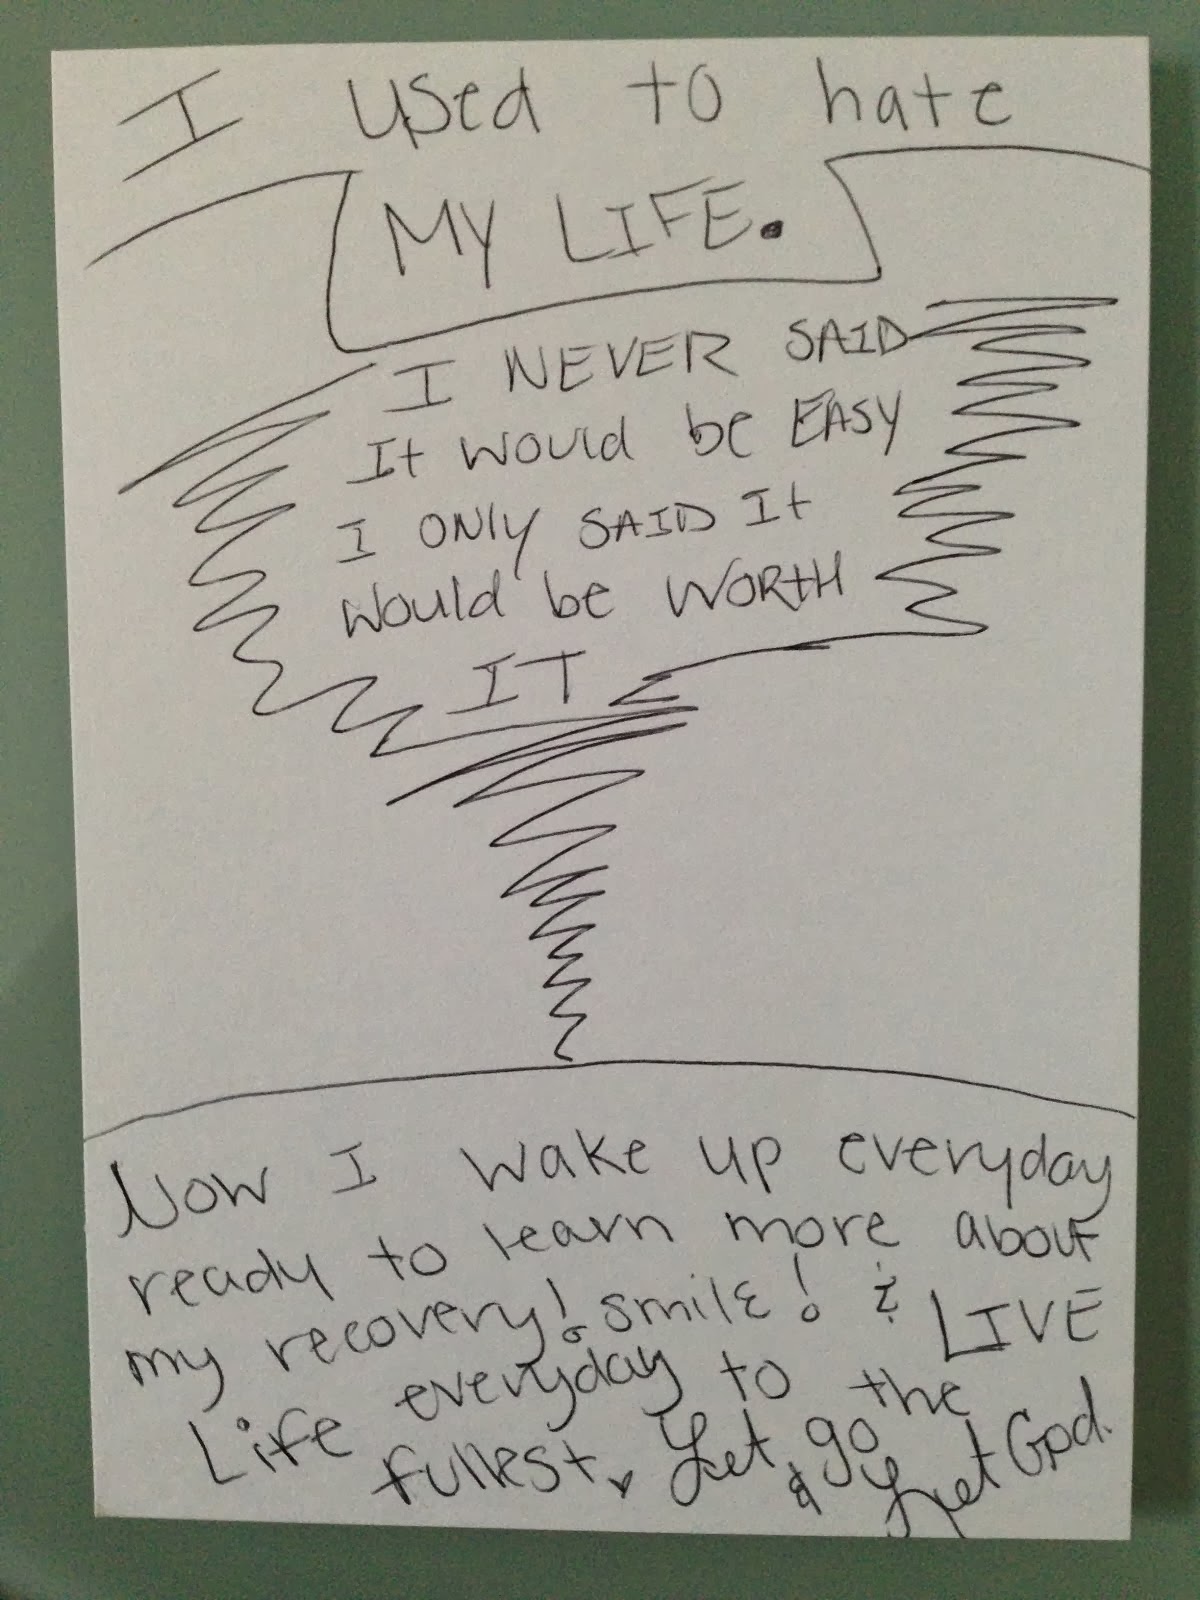 I used to hate
MY LIFE.
I NEVER SAID
It would be EASY
I ONLY SAID It
Would be WORTH
IT
Now I wake up everyday
ready to learn more about
my recovery! smile! & LIVE
Life everyday to the
fullest. Let go
& Let God.